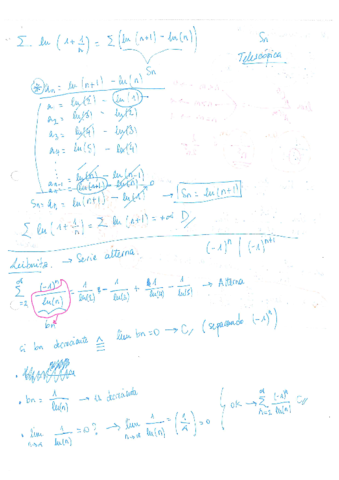 Σ ln (1 + 1/n) = Σ [ln (n+1) - ln(n)]    Sn
Sn    Telescópica
an = ln (n+1) - ln(n)
a1 = ln(2) - ln(1)
a2 = ln(3) - ln(2)
a3 = ln(4) - ln(3)
a4 = ln(5) - ln(4)
⋮
an-1 = ln(n) - ln(n-1)
an = ln(n+1) - ln(n)
Sn = ln(n+1) - ln(1) → 0 → Sn = ln(n+1)
Σ ln (1 + 1/n) = Σ ln (n+1) = +∞ D//
Leibniz → Serie alterna.    (-1)^n | (-1)^{n+1}
Σ_{n=2}^{∞} (-1)^n / ln(n) = 1/ln(2) - 1/ln(3) + 1/ln(4) - 1/ln(5) → Alterna
bn
si bn decreciente ∧ lim bn = 0 → C// (separando (-1)^n)
• bn = 1/ln(n) → es decreciente
• lim_{n→∞} 1/ln(n) = 0? → lim_{n→∞} 1/ln(n) = (1/∞) = 0    OK → Σ_{n=2}^{∞} (-1)^n / ln(n) C//